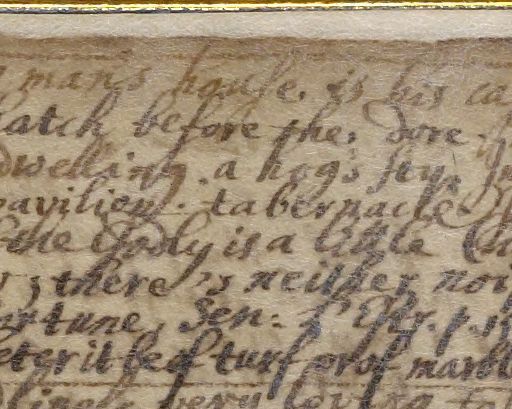 mans house is his ca
hatch before the dore
dwelling. a hogs sty,
pavilion. tabernacle
the Godly is a little
there 's neither noi
ortune, Sen:
eter it be of turf or of marbl
very loving to